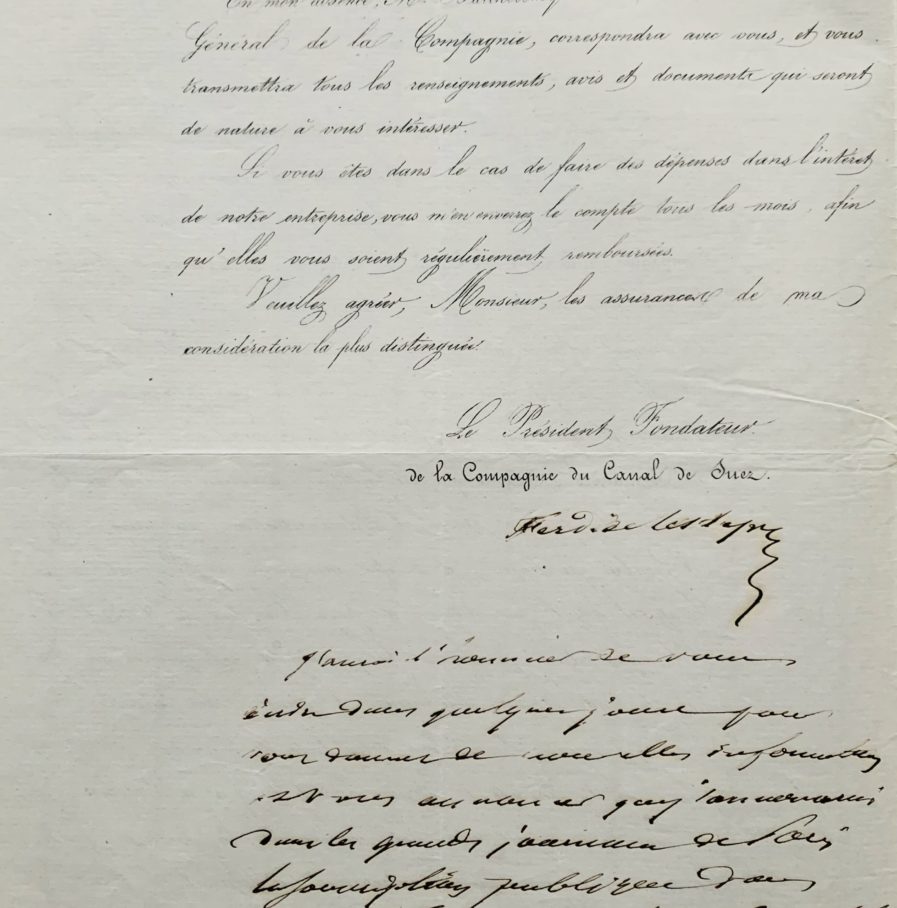 En mon absence, M.
Général de la Compagnie, correspondra avec vous, et vous
transmettra tous les renseignements, avis et documents qui seront
de nature à vous intéresser.
Si vous êtes dans le cas de faire des dépenses dans l'intérêt
de notre entreprise, vous m'en enverrez le compte tous les mois, afin
qu'elles vous soient régulièrement remboursées.
Veuillez agréer, Monsieur, les assurances de ma
considération la plus distinguée.
Le Président Fondateur
de la Compagnie du Canal de Suez.
Ferd. de Lesseps
J'aurai l'honneur de vous
écrire dans quelques jours pour
vous donner de nouvelles informations
et vous annoncer que j'annoncerai
dans les grands journaux de Paris
la souscription publique dans